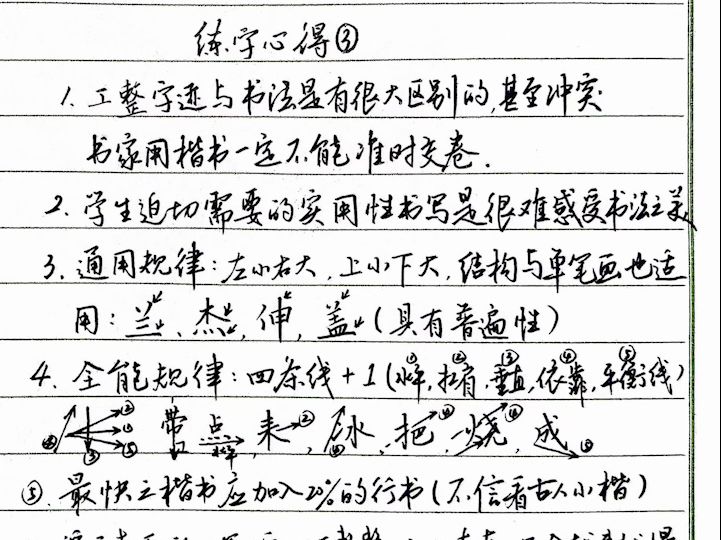 练字心得③
1. 工整字迹与书法是有很大区别的,甚至冲突
书家用楷书一定不能准时交卷.
2. 学生迫切需要的实用性书写是很难感受书法之美
3. 通用规律:左小右大,上小下大,结构与单笔画也适
用:兰、杰、伸、盖(具有普遍性)
4. 全能规律:四条线+1(①水平,②扛肩,③垂直,④依靠,⑤平衡线)
带 点 来 冰,把,烧,成
⑤. 最快之楷书应加入20%的行书(不信看古人小楷)